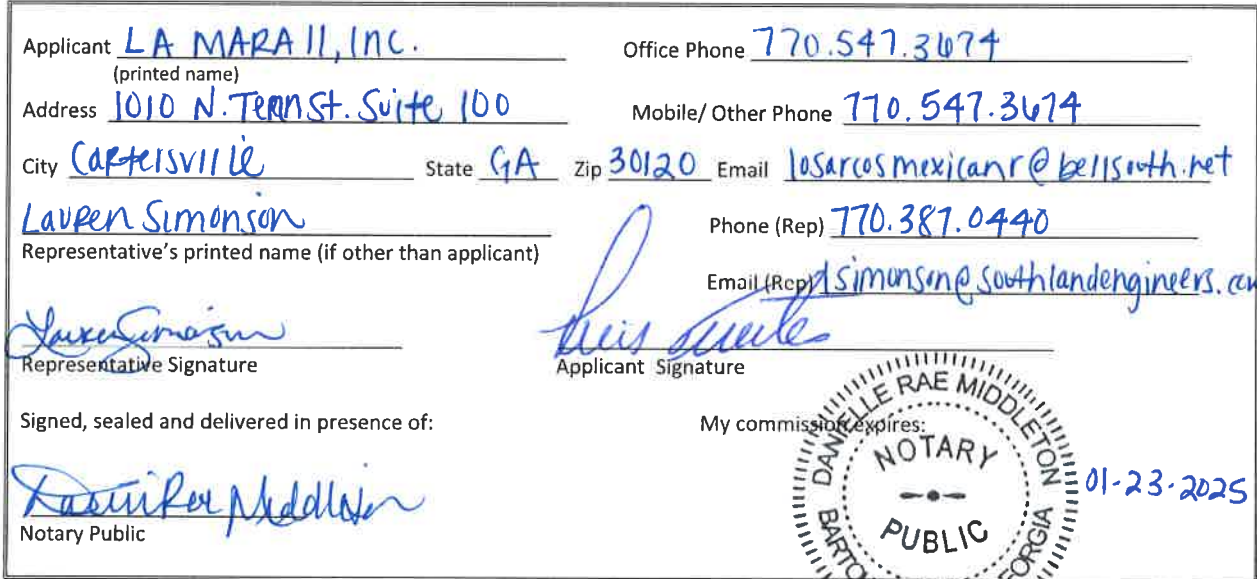 Applicant LA MARA II, INC. Office Phone 770.547.3674
(printed name)
Address 1010 N. Tenn St. Suite 100 Mobile/ Other Phone 770.547.3674
City Cartersville State GA Zip 30120 Email losarcosmexicanr@bellsouth.net
Lauren Simonson Phone (Rep) 770.387.0440
Representative's printed name (if other than applicant)
Email (Rep) lsimonson@southlandengineers.com
Lauren Simonson
Representative Signature Applicant Signature
Signed, sealed and delivered in presence of: My commission expires:
DANIELLE RAE MIDDLETON
NOTARY
PUBLIC
01-23-2025
Danielle Rae Middleton
Notary Public